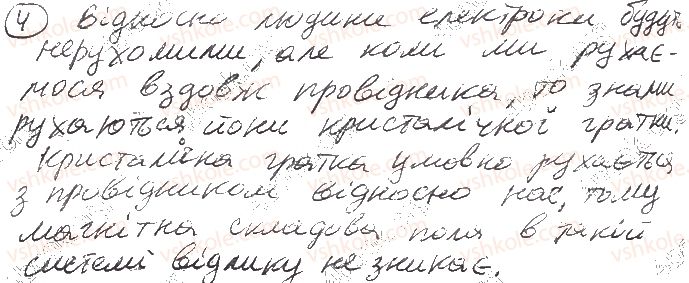 ④ Відносно людини електрони будуть
нерухомими, але коли ми рухає-
мося вздовж провідника, то з нами
рухаються йони кристалічної гратки.
Кристалічна гратка умовно рухається
з провідником відносно нас, тому
магнітна складова поля в такій
системі відліку не зникає.